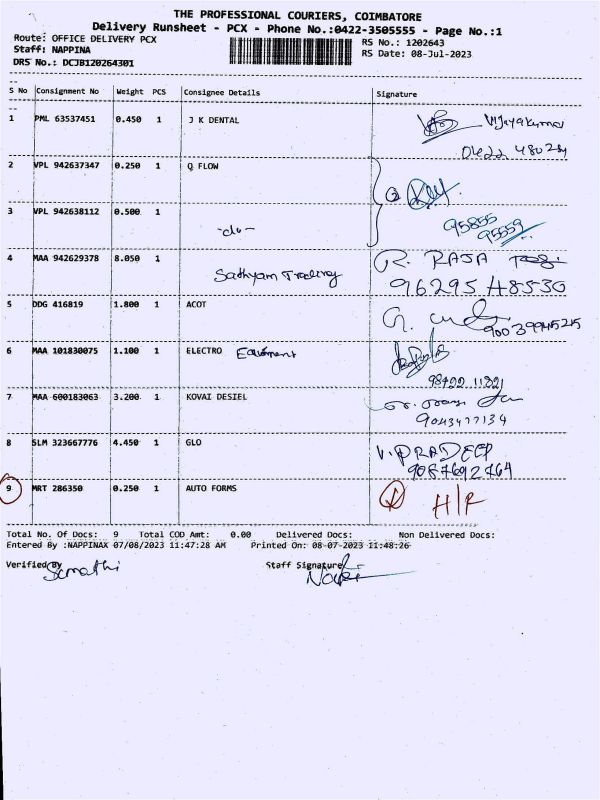 THE PROFESSIONAL COURIERS, COIMBATORE
Delivery Runsheet - PCX - Phone No.:0422-3505555 - Page No.:1
Route: OFFICE DELIVERY PCX
RS No.: 1202643
Staff: NAPPINA
RS Date: 08-Jul-2023
DRS No.: DCJB120264301
S No Consignment No Weight PCS Consignee Details Signature
1 PML 63537451 0.450 1 J K DENTAL Vijayakumar
2 VPL 942637347 0.250 1 Q FLOW
3 VPL 942638112 0.500 1 -do- 95855
95559
4 MAA 942629378 8.050 1 Sathyam Trading R. RAJA
96295 48530
5 DDG 416819 1.800 1 ACOT
6 MAA 101830075 1.100 1 ELECTRO
98422 11321
7 MAA 600183063 3.200 1 KOVAI DESIEL
9043477134
8 SLM 323667776 4.450 1 GLO V. PRADEEP
9087692464
9 MRT 286350 0.250 1 AUTO FORMS
Total No. Of Docs: 9 Total COD Amt: 0.00 Delivered Docs: Non Delivered Docs:
Entered By :NAPPINAX 07/08/2023 11:47:28 AM Printed On: 08-07-2023 11:48:26
Verified By Sumathi Staff Signature